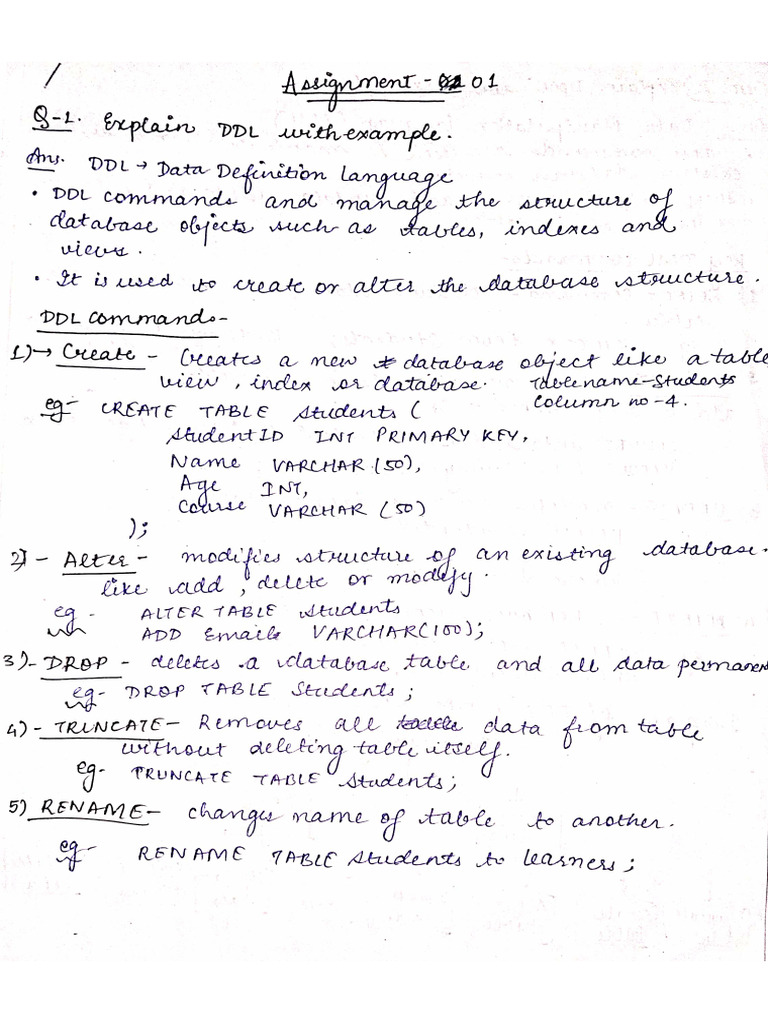 Assignment - 01
Q-1. Explain DDL with example.
Ans. DDL → Data Definition Language
• DDL commands and manage the structure of
database objects such as tables, indexes and
views.
• It is used to create or alter the database structure.
DDL Commands-
1)→ Create - Creates a new database object like a table
view, index or database. Table name - Students
Column no - 4.
eg- CREATE TABLE Students (
StudentID INT PRIMARY KEY,
Name VARCHAR (50),
Age INT,
Course VARCHAR (50)
);
2) - Alter - modifies structure of an existing database.
like add, delete or modify.
eg - ALTER TABLE Students
ADD Emails VARCHAR(100);
3)- DROP - deletes a database table and all data permanen
eg- DROP TABLE Students;
4) - TRUNCATE - Removes all data from table
without deleting table itself.
eg- TRUNCATE TABLE Students;
5) RENAME - changes name of table to another.
eg- RENAME TABLE Students to learners;